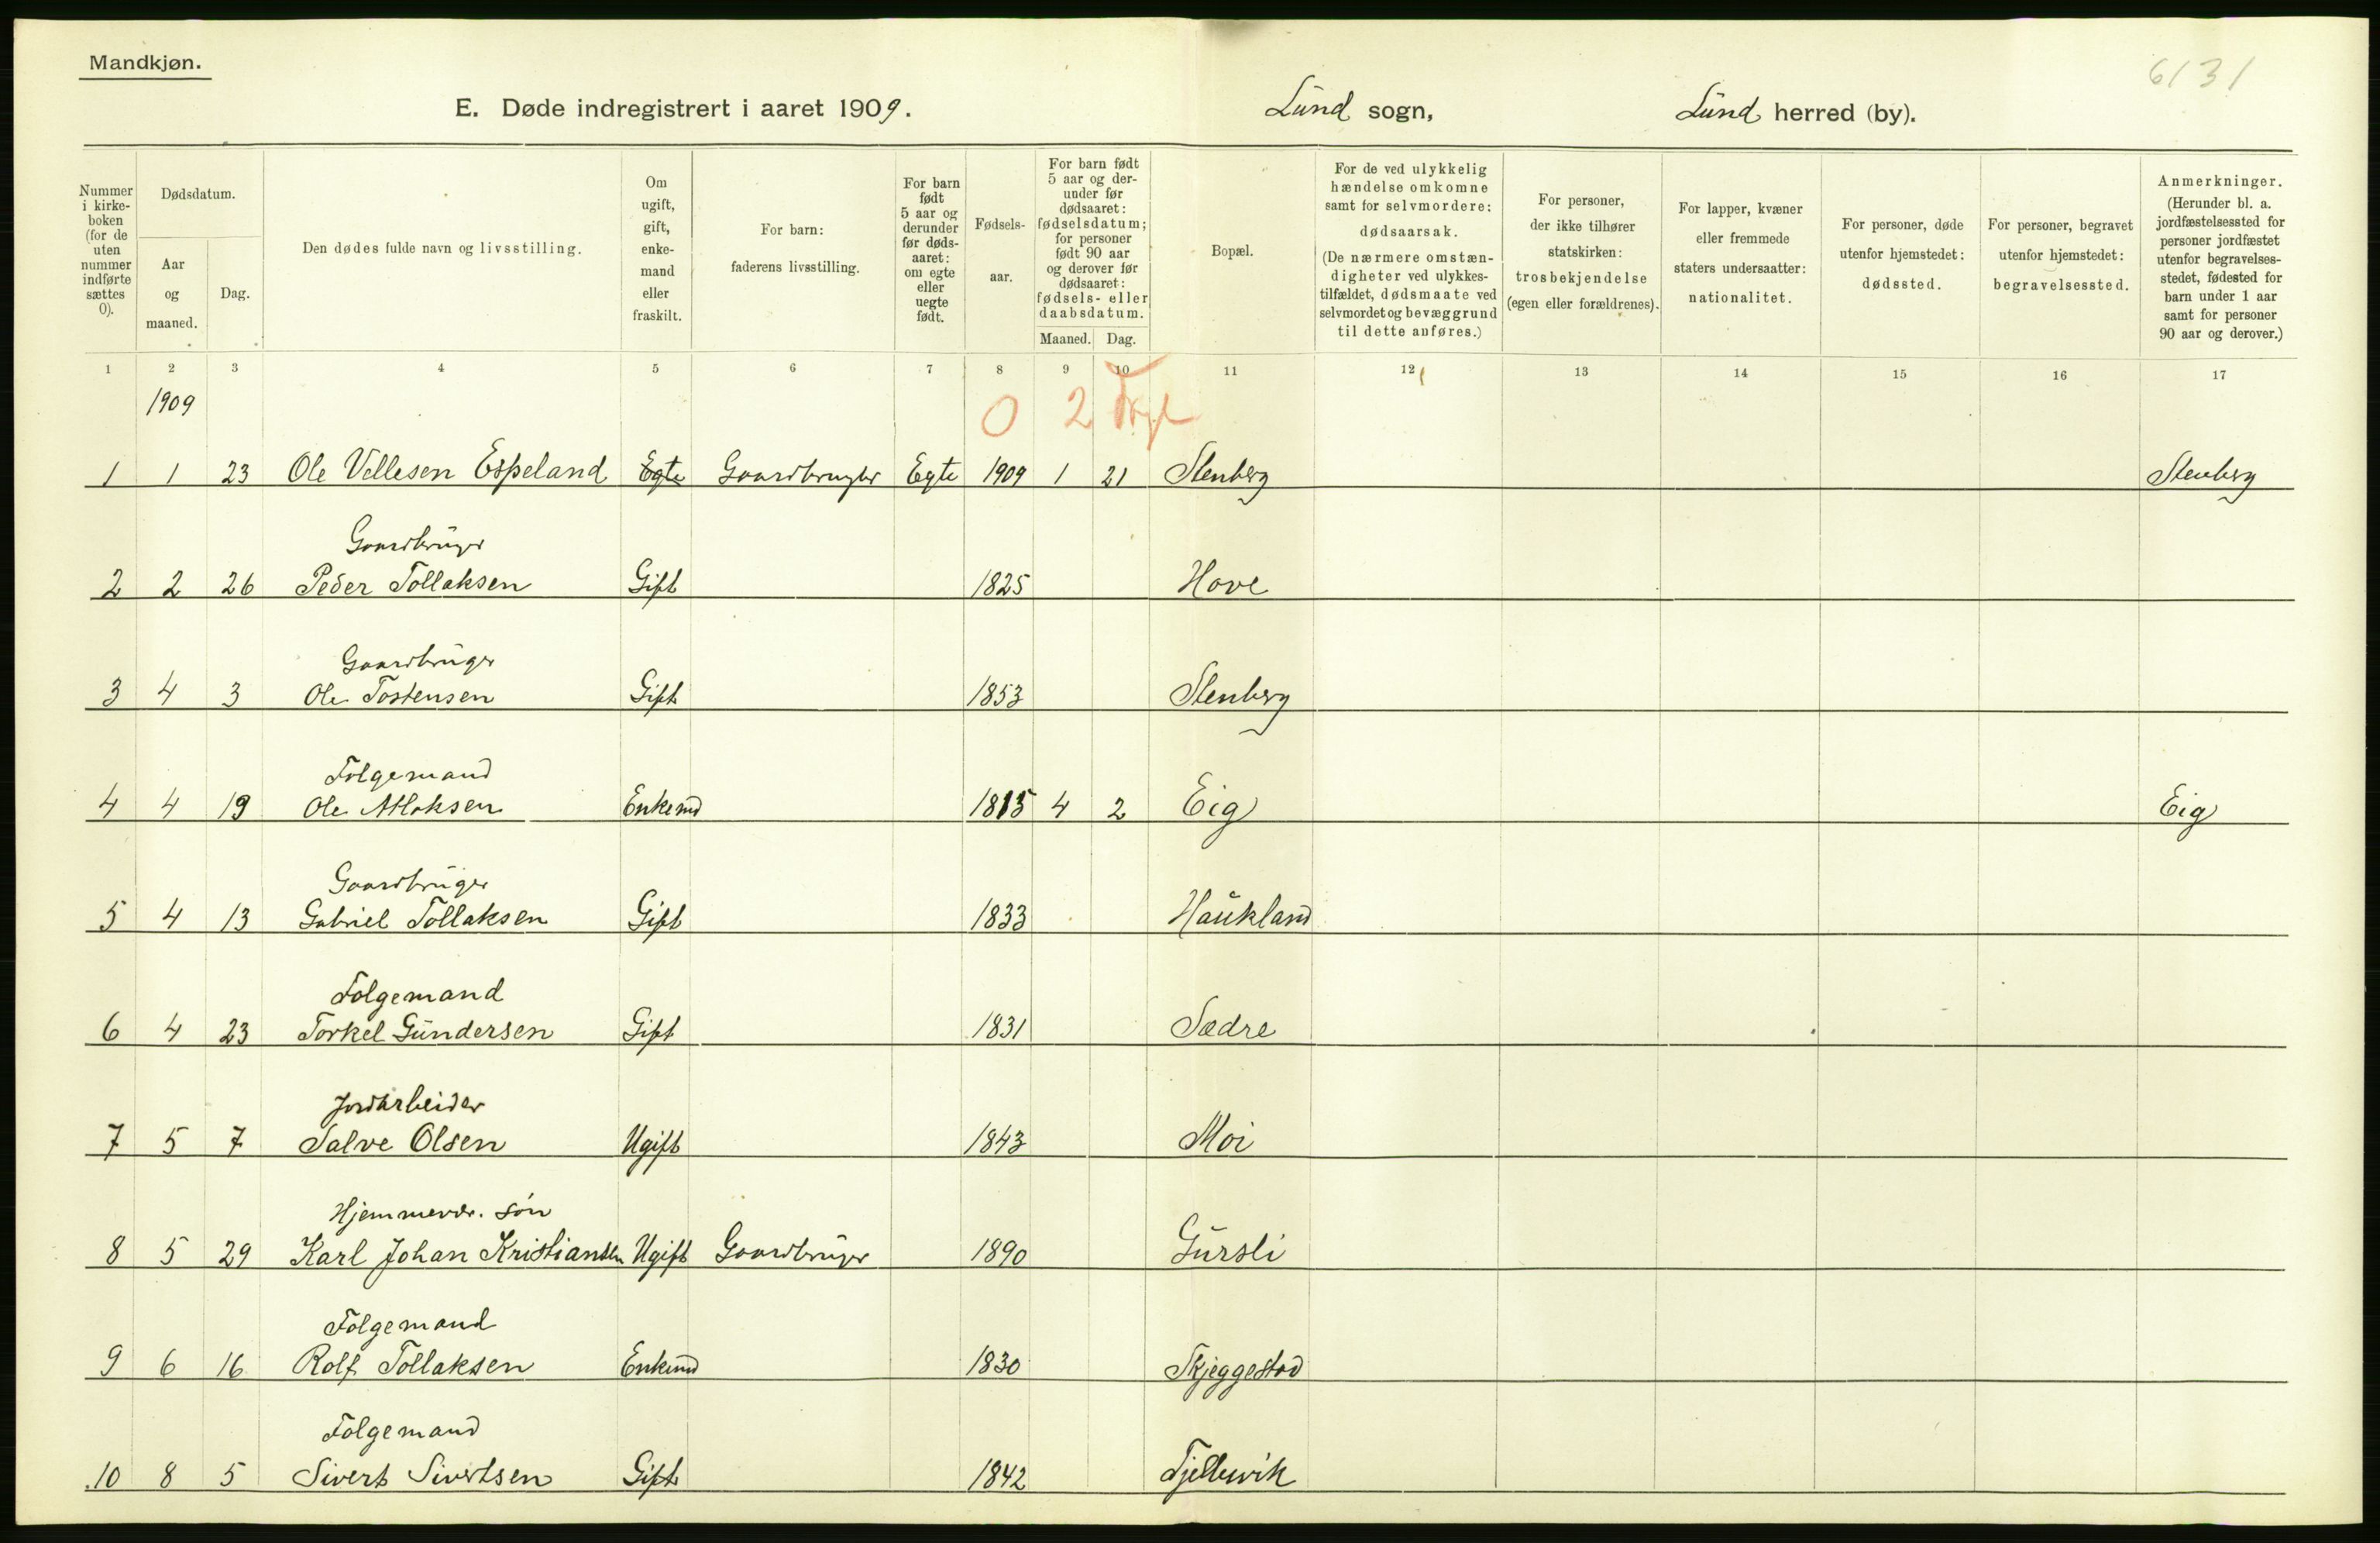 Mandkjøn.
6131
E. Døde indregistrert i aaret 1909. Lund sogn, Lund herred (by).
Nummer i kirke-boken (for de uten nummer indførte sættes 0).
Dødsdatum.
Aar og maaned.
Dag.
Den dødes fulde navn og livsstilling.
Om ugift, gift, enke-mand eller fraskilt.
For barn: faderens livsstilling.
For barn født 5 aar og derunder før døds-aaret: om egte eller uegte født.
Fødsels-aar.
For barn født 5 aar og der-under før dødsaaret: fødselsdatum; for personer født 90 aar og derover før dødsaaret: fødsels- eller daabsdatum.
Maaned. Dag.
Bopæl.
For de ved ulykkelig hændelse omkomne samt for selvmordere: dødsaarsak. (De nærmere omstæn-digheter ved ulykkes-tilfældet, dødsmaate ved selvmordet og bevæggrund til dette anføres.)
For personer, der ikke tilhører statskirken: trosbekjendelse (egen eller forældrenes).
For lapper, kvæner eller fremmede staters undersaatter: nationalitet.
For personer, døde utenfor hjemstedet: dødssted.
For personer, begravet utenfor hjemstedet: begravelsessted.
Anmerkninger. (Herunder bl. a. jordfæstelsessted for personer jordfæstet utenfor begravelses-stedet, fødested for barn under 1 aar samt for personer 90 aar og derover.)
1 2 3 4 5 6 7 8 9 10 11 12 13 14 15 16 17
1909
0 2
1 1 23 Ole Vellesen Espeland Egte Gaardbruger Egte 1909 1 21 Stenberg Stenberg
Gaardbruger
2 2 26 Peder Tollaksen Gift 1825 Hove
Gaardbruger
3 4 3 Ole Tostensen Gift 1853 Stenberg
Folgemand
4 4 19 Ole Atlaksen Enkemd 1815 4 2 Eig Eig
Gaardbruger
5 4 13 Gabriel Tollaksen Gift 1833 Haukland
Folgemand
6 4 23 Torkel Gundersen Gift 1831 Sædre
Jordarbeider
7 5 7 Salve Olsen Ugift 1843 Moi
Hjemmevær. søn
8 5 29 Karl Johan Kristiansen Ugift Gaardbruger 1890 Gursli
Folgemand
9 6 16 Rolf Tollaksen Enkemd 1830 Skjeggestad
Folgemand
10 8 5 Sivert Sivertsen Gift 1842 Fjellesvik